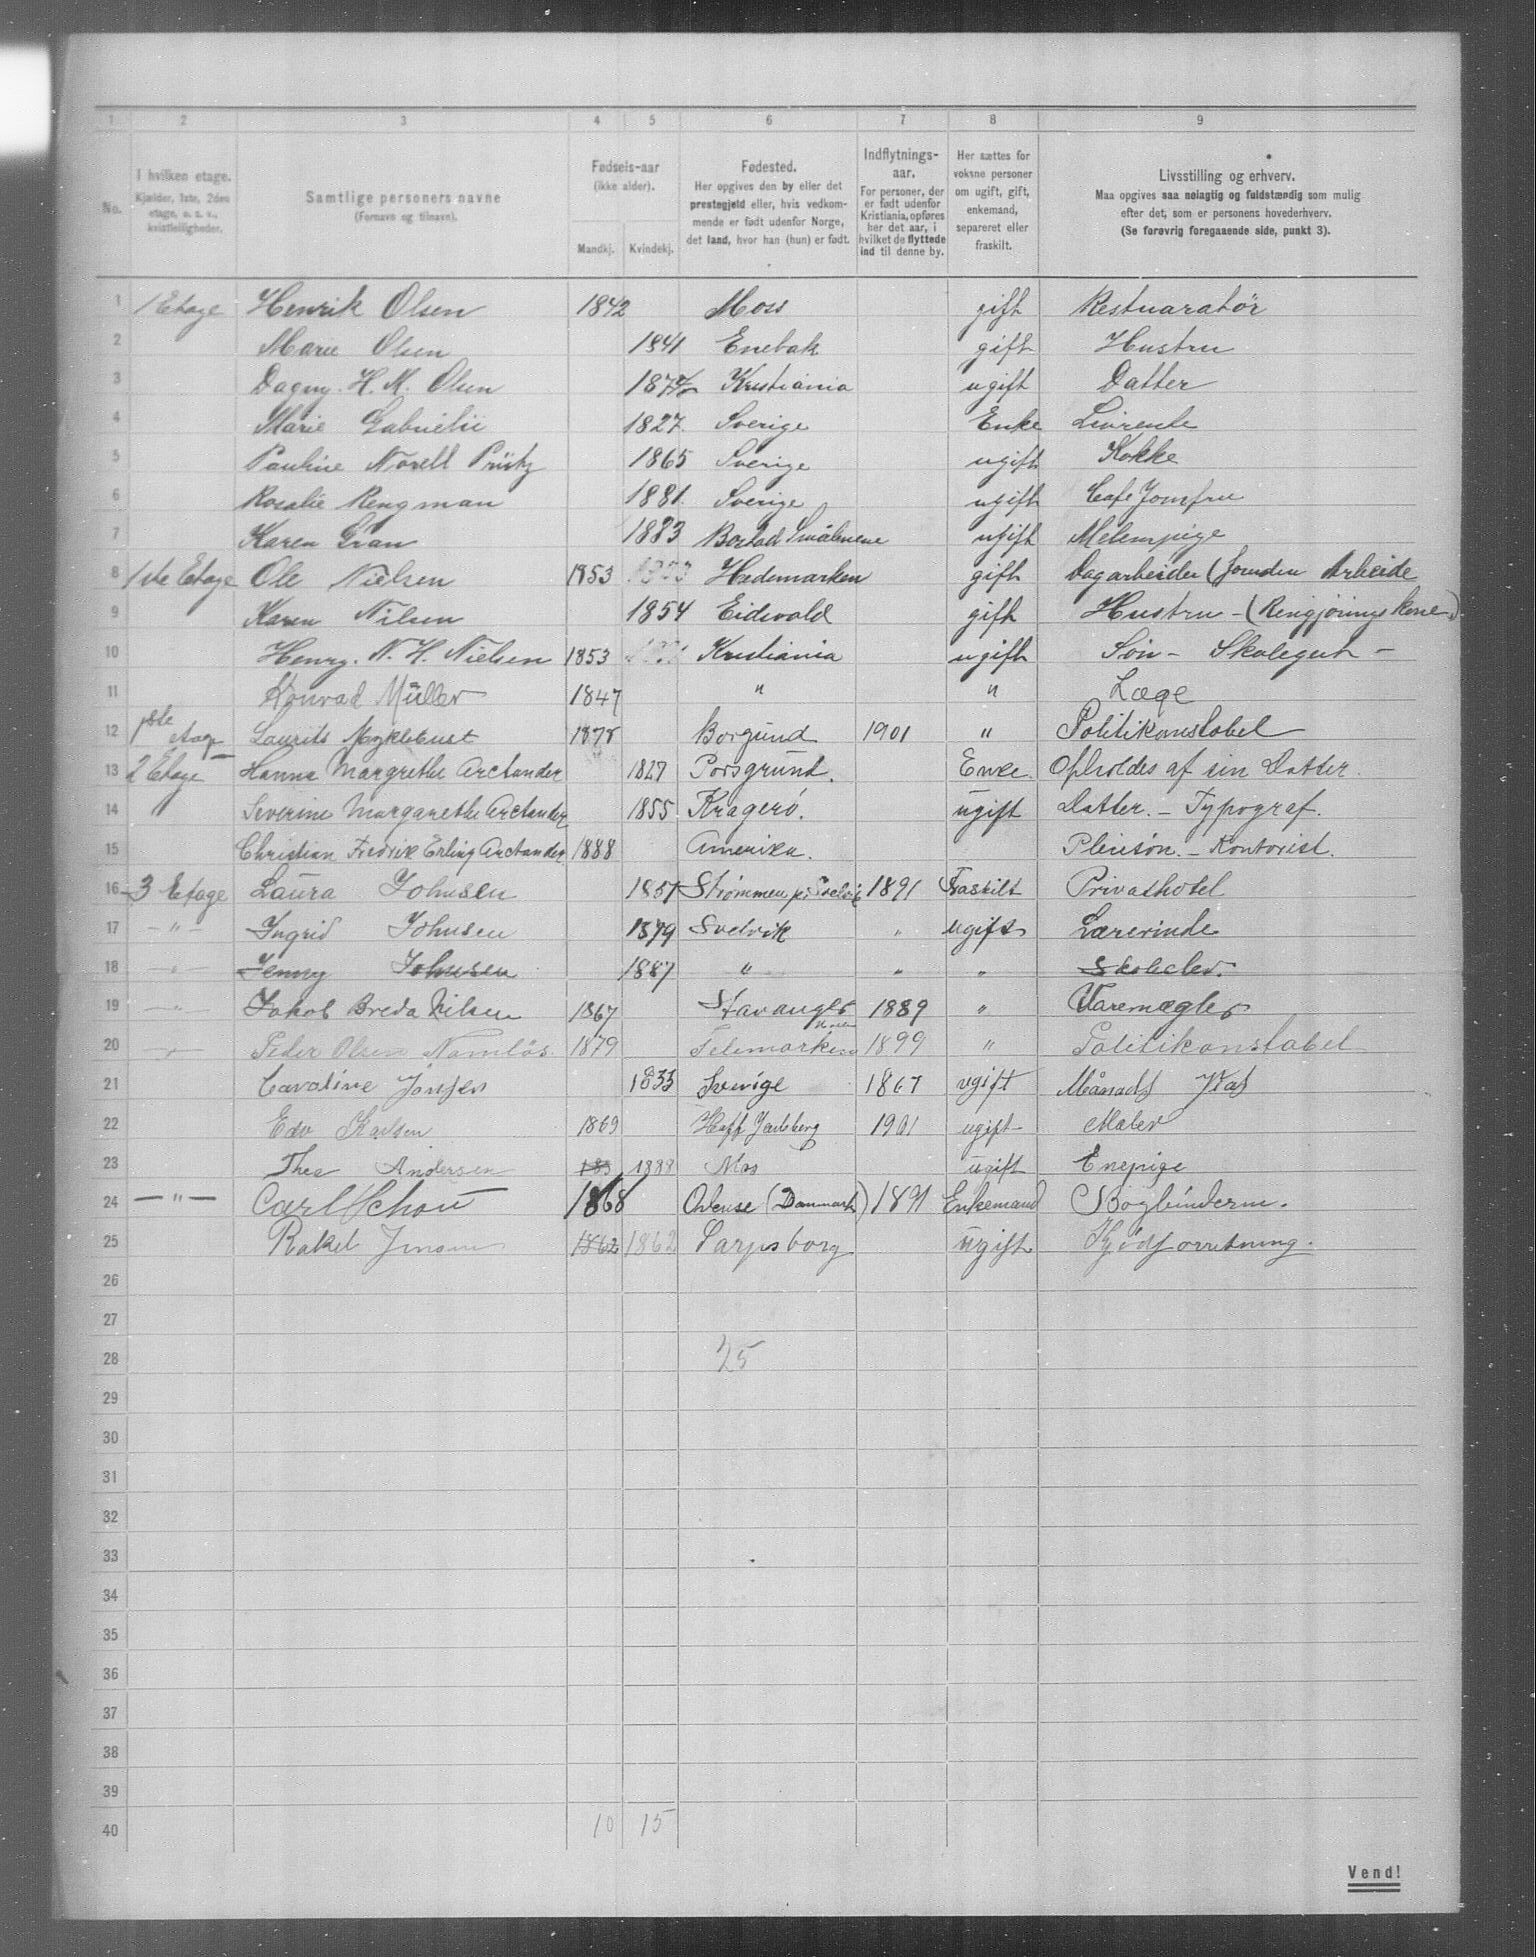 1 2 3 4 5 6 7 8 9
No.
I hvilken etage.
Kjælder, 1ste, 2den
etage, o. s. v.,
kvistleiligheder.
Samtlige personers navne
(Fornavn og tilnavn).
Fødsels-aar
(ikke alder).
Mandkj. Kvindekj.
Fødested.
Her opgives den by eller det
prestegjeld eller, hvis vedkom-
mende er født udenfor Norge,
det land, hvor han (hun) er født.
Indflytnings-
aar.
For personer, der
er født udenfor
Kristiania, opføres
her det aar, i
hvilket de flyttede
ind til denne by.
Her sættes for
voksne personer
om ugift, gift,
enkemand,
separeret eller
fraskilt.
Livsstilling og erhverv.
Maa opgives saa nøiagtig og fuldstændig som mulig
efter det, som er personens hovederhverv.
(Se forøvrig foregaaende side, punkt 3).
1 1 Etage Henrik Olsen 1842 Moss gift Restuaratør
2 Marie Olsen 1841 Enebak gift Hustru
3 Dagny. H. M. Olsen Kristiania ugift Datter
4 Marie 1827 Sverige Enke Livrente
5 Pauline Norell 1865 Sverige ugift Kokke
6 Rosalie Rengman 1881 Sverige ugift Cafe Jomfru
7 Karen Gran 1883 Smålenene ugift
8 1ste Etage Ole Nielsen 1853 Hedemarken gift Dagarbeider (Jorden Arbeide
9 Karen Nilsen 1854 Eidsvold gift Hustru - (Rengjørings Kone)
10 Henry. N. H. Nielsen 1853 Kristiania ugift Søn - Skolegut -
11 Konrad Müller 1847 " " Læge
12 1ste Etage Laurits Myklebust 1878 Borgund 1901 " Politikonstabel
13 2 Etage Hanna Margrethe Arctander 1827 Porsgrund. Enke. Opholdes af sin Datter.
14 Severine Margarethe Arctander 1855 Kragerö. ugift Datter. - Typograf.
15 Christian Fredrik Erling Arctander 1888 Amerika. Pleisøn. - Kontorist.
16 3 Etage Laura Johnsen 1857 Strømmen pr Svelvik 1891 Fraskilt Privathotel
17 - " - Ingrid Johnsen 1879 Svelvik " ugift Lærerinde
18 - " - Jenny Johnsen 1887 " " " Skoleelev.
19 - " Jakob Breda Nilsen 1867 Stavanger 1889 " Varemægler
20 - " Peder Olsen Namlös 1879 Telemarken 1899 " Politikonstabel
21 Caroline 1833 Sverige 1867 ugift Månads
22 Edv Karlsen 1869 Jarlsberg 1901 ugift Maler
23 Thea Andersen 183 1888 Mos ugift Enepige
24 - " - Carl Schou 1868 Odense (Danmark) 1891 Enkemand Bogbinderm.
25 Rakel Jensen 1862 1862 Sarpsborg ugift Kjödforretning.
26
27
28 25
29
30
31
32
33
34
35
36
37
38
39
40 10 15
Vend!